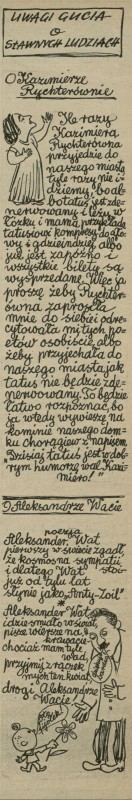 UWAGI GUCIA
O
SŁAWNYCH LUDZIACH
O Kazimierze
Rychterównie
Ile razy
Kazimiera
Rychterówna
przyjedzie do
naszego miasta
tyle razy nie i-
dziemy, bo al-
bo tatuś jest zde-
nerwowany i leży w
łóżku i mama przykłada
tatusiowi kompresy do gło-
wy i gdzieindziej, albo
już jest zapóźno i
wszystkie bilety są
wysprzedane. Więc ja
proszę żeby Rychter-
ówna zaprosiła
mnie do siebie i ode-
cytowała mi tych po-
etów osobiście, albo
żeby przyjechała do
naszego miasta jak
tatuś nie będzie zde-
nerwowany. To będzie
łatwo rozpoznać, bo
ja wtedy wywieszę na
kominie naszego dom-
ku chorągiew z napisem
"Dzisiaj tatuś jest w dob-
rym humorze wal Kazi-
miero!"
O Aleksandrze Wacie
poezja
Aleksander Wat
pierwszy w świecie zgadł,
że kosmos na sympatii
i dlatego "Wat" stoi
już od tylu lat
słynie jako "Anty-Zoil"
Aleksander Wat
idzie śmiało w świat,
pisze wiersze na
krawacie
chociaż mam tyle
wad
przyjmij z rączek
mych ten kwiat
drogi Aleksandrze
Wacie